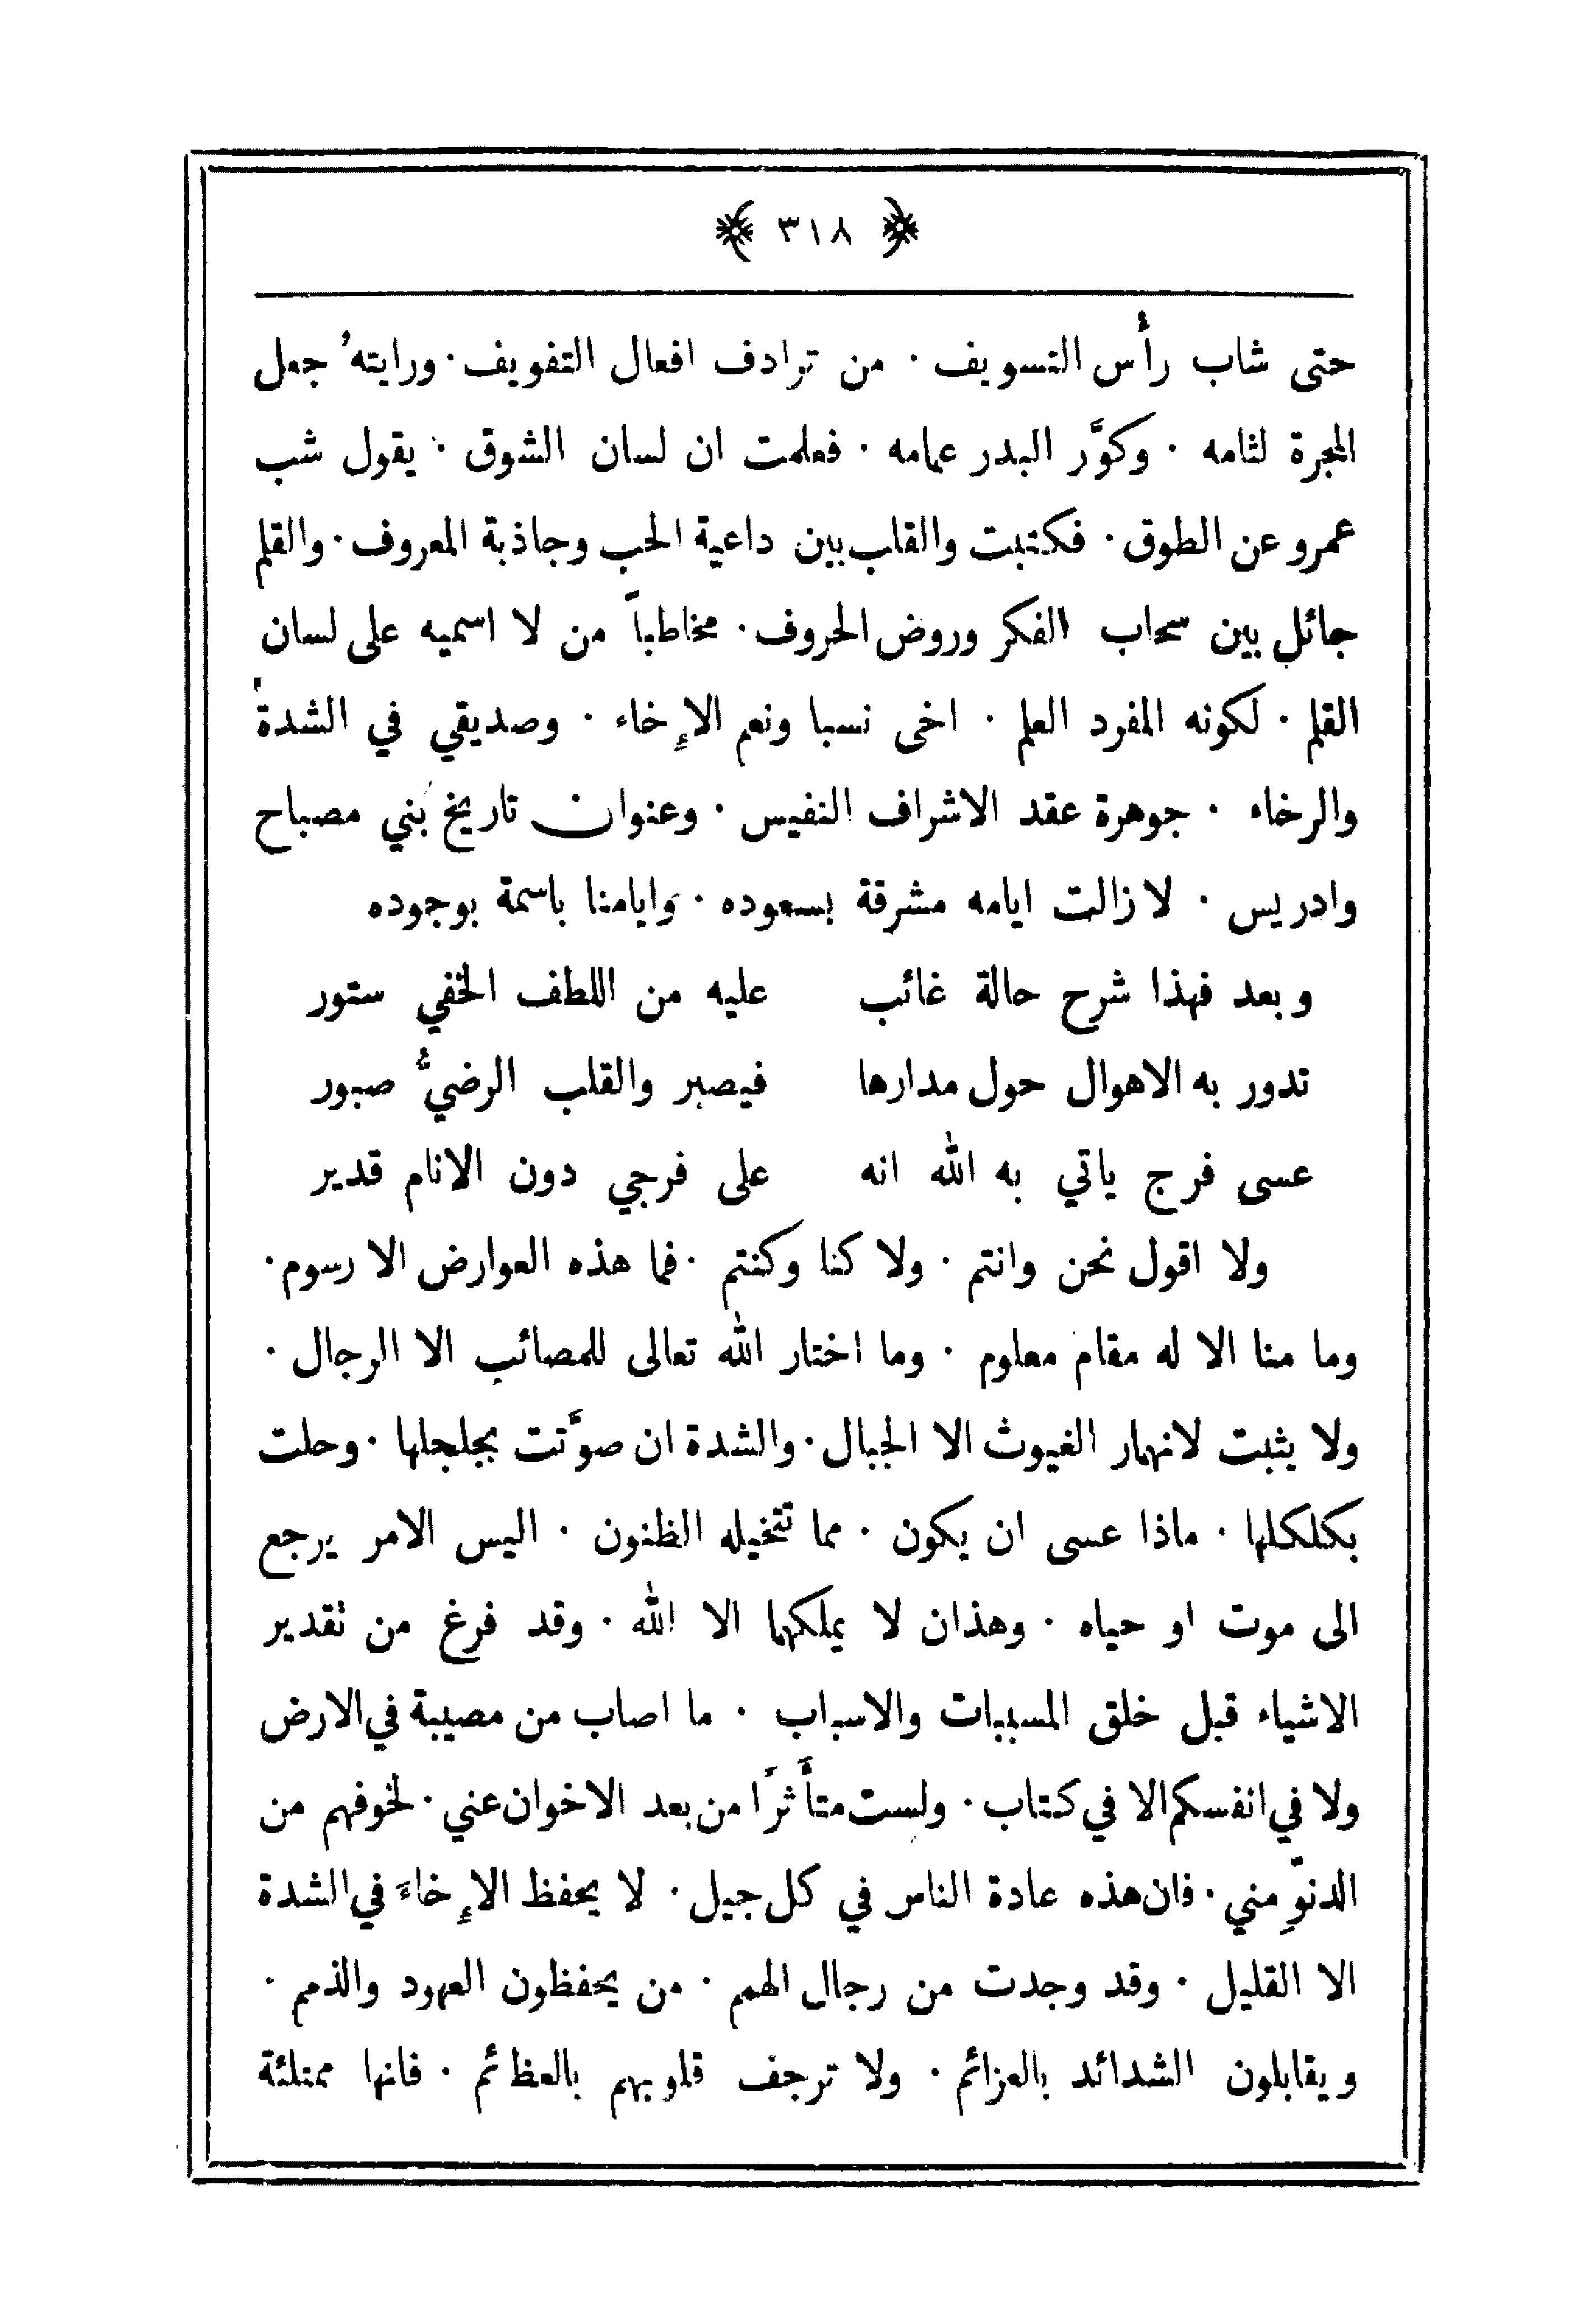 ﴿ ٣١٨ ﴾
حتى شاب رأس التسويف · من ترادف افعال التفويف · ورايتهُ جعل
المجرة لثامه · وكوَّر البدر عمامه · فعلمت ان لسان الشوق · يقول شب
عمرو عن الطوق · فكتبت والقلب بين داعية الحب وجاذبة المعروف · والقلم
جائل بين سحاب الفكر وروض الحروف · مخاطباً من لا اسميه على لسان
القلم · لكونه المفرد العلم · اخى نسبا ونعم الإخاء · وصديقي في الشدة
والرخاء · جوهرة عقد الاشراف النفيس · وعنوان تاريخ بني مصباح
وادريس · لا زالت ايامه مشرقة بسعوده · وايامنا باسمة بوجوده
وبعد فهذا شرح حالة غائب عليه من اللطف الخفي ستور
تدور به الاهوال حول مدارها فيصبر والقلب الرضيُّ صبور
عسى فرج ياتي به الله انه على فرجي دون الانام قدير
ولا اقول نحن وانتم · ولا كنا وكنتم · فما هذه العوارض الا رسوم ·
وما منا الا له مقام معلوم · وما اختار الله تعالى للمصائب الا الرجال ·
ولا يثبت لانهمار الغيوث الا الجبال · والشدة ان صوَّتت بجلجلها · وحلت
بكلكلها · ماذا عسى ان يكون · مما تتخيله الظنون · اليس الامر يرجع
الى موت او حياه · وهذان لا يملكهما الا الله · وقد فرغ من تقدير
الاشياء قبل خلق المسببات والاسباب · ما اصاب من مصيبة في الارض
ولا في انفسكم الا في كتاب · ولست متأَثرًا من بعد الاخوان عني · لخوفهم من
الدنوِّ مني · فان هذه عادة الناس في كل جيل · لا يحفظ الإخاءَ في الشدة
الا القليل · وقد وجدت من رجال الهمم · من يحفظون العهود والذمم ·
ويقابلون الشدائد بالعزائم · ولا ترجف قلوبهم بالعظائم · فانها ممتلئة